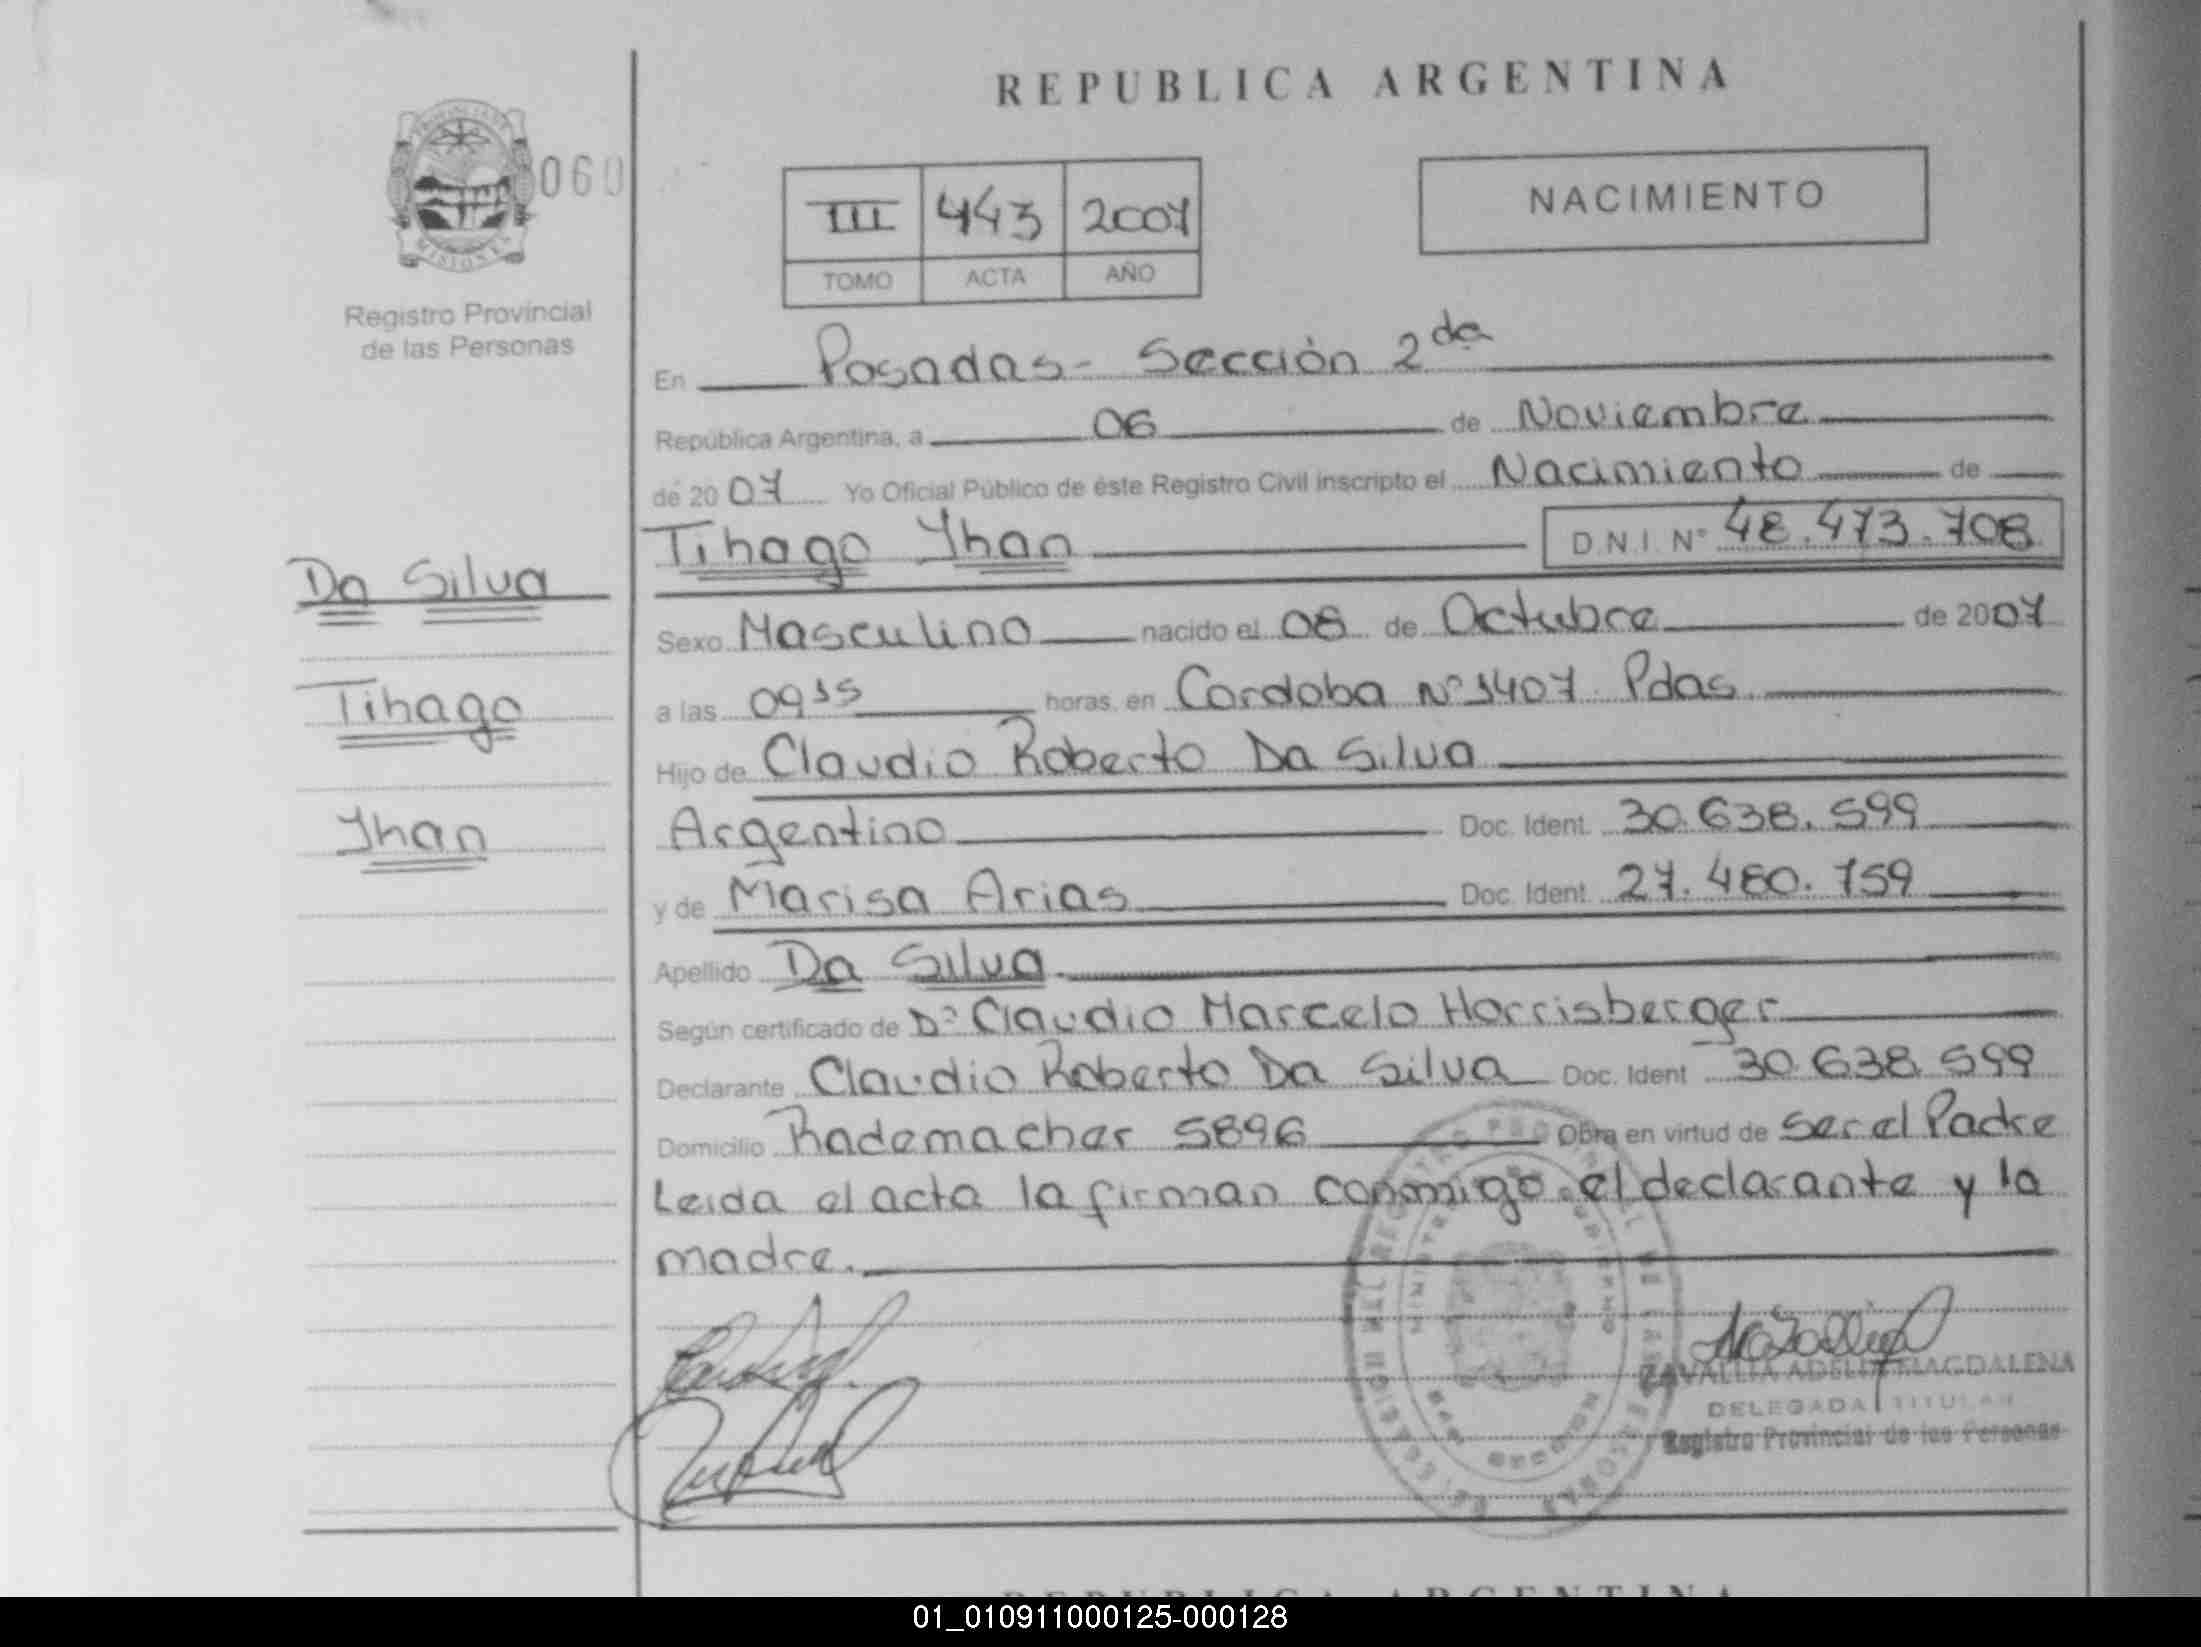 REPUBLICA ARGENTINA
060
III 443 2007
TOMO ACTA AÑO
NACIMIENTO
Registro Provincial
de las Personas
En Posadas - Sección 2da
República Argentina, a 06 de Noviembre
de 2007 Yo Oficial Público de éste Registro Civil inscripto el Nacimiento de
Tihago Jhan D.N.I. Nº 48.473.708
Da Silva
Tihago
Jhan
Sexo Masculino nacido el 08 de Octubre de 2007
a las 0915 horas, en Cordoba Nº 1407 Pdas
Hijo de Claudio Roberto Da Silva
Argentino Doc. Ident. 30.638.599
y de Marisa Arias Doc. Ident. 27.480.759
Apellido Da Silva
Según certificado de Dr Claudio Marcelo Horrisberger
Declarante Claudio Roberto Da Silva Doc. Ident 30.638.599
Domicilio Rademacher 5896 Obra en virtud de ser el Padre
Leida el acta la firman conmigo el declarante y la
madre.
ZAVALLIA MAGDALENA
DELEGADA TITULAR
Registro Provincial de las Personas
REPUBLICA ARGENTINA
01_010911000125-000128